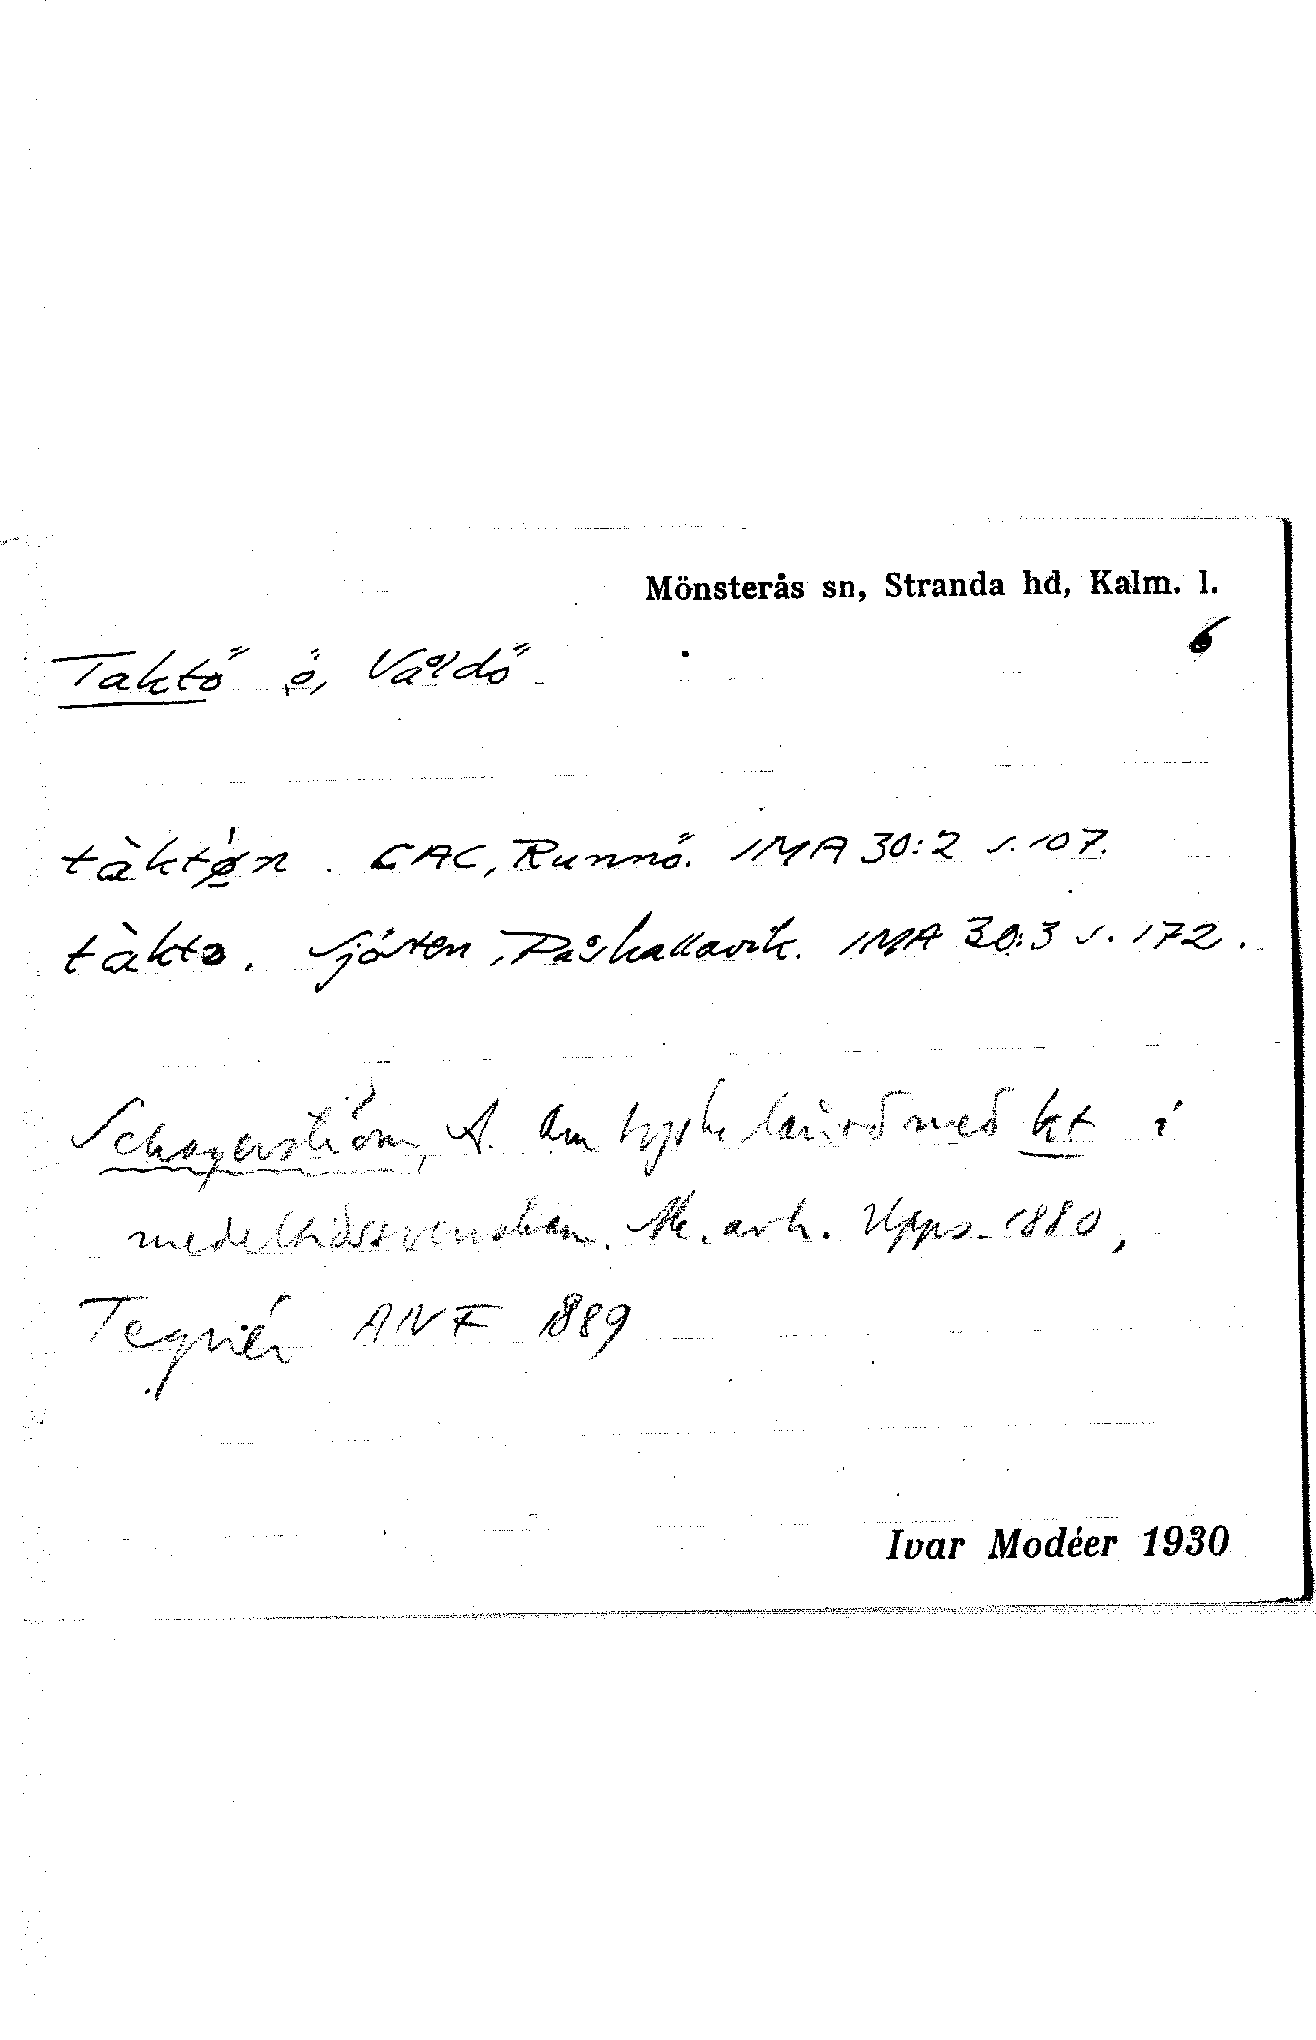 Mönsterås sn, Stranda hd, Kalm. l.
6
Taktö ö, Våldö
tàktø̀n. CAC, Runnö. IMA 30:2 s. 107.
tàktə. Sjösten, Påskallavik. IMA 30:3 s. 172.
Schagerström, A. Om tyska lånord med kt i
medeltidssvenskan. Ak. avh. Upps. 1880,
Tegnér ANF 1889
Ivar Modéer 1930